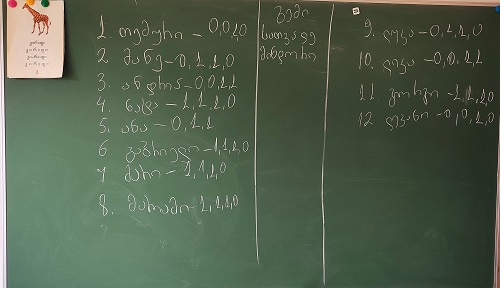 1. თემური - 0,0,1,0
2. მანე - 0,1,1,0
3. ანდრია - 0,0,1,1
4. ნატა - 1,1,1,0
5. ანა - 0,1,1
6. გაბრიელი - 1,1,1,0
7. მარი - 1,1,1,0
8. მარიამი - 1,1,1,0
გემი
სათვალე
მანდორი
9. ლუკა - 0,1,1,0
10. ლუკა - 0,0,1,1
11. გიორგი - 1,1,1,0
12. ლევანი - 0,0,1,0